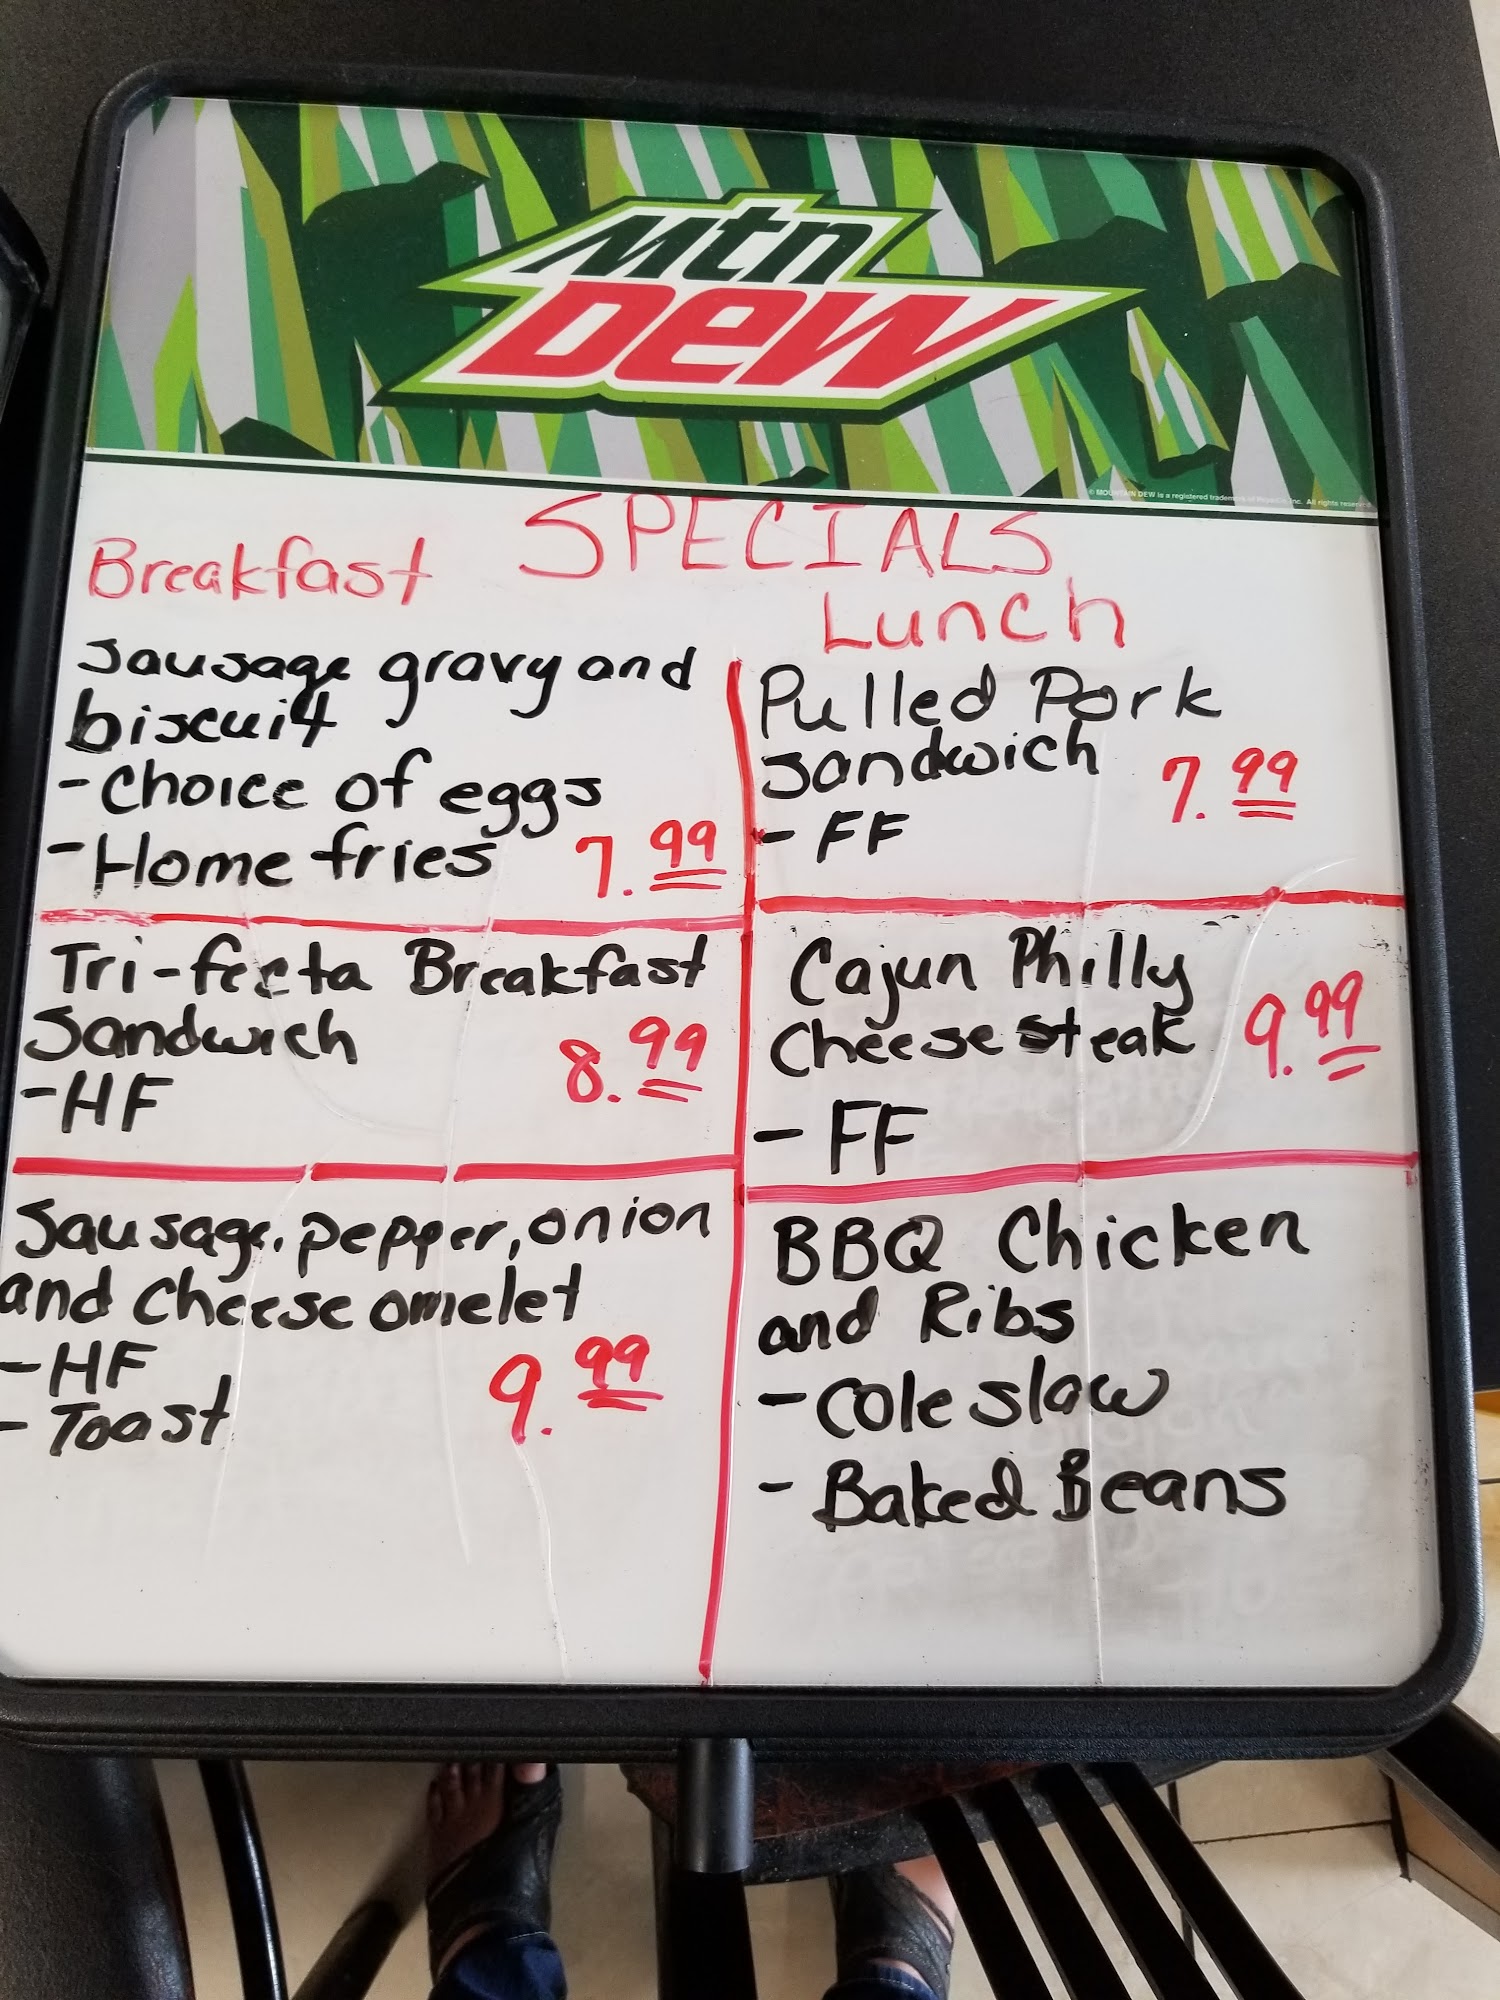 Mtn
DEW
© MOUNTAIN DEW is a registered trademark of PepsiCo, Inc. All rights reserved.
SPECIALS
Breakfast
Sausage gravy and
biscuit
- Choice of eggs
- Home fries 7.99
Tri-fecta Breakfast
Sandwich 8.99
- HF
Sausage, pepper, onion
and Cheese omelet
- HF 9.99
- Toast
Lunch
Pulled Pork
Sandwich 7.99
- FF
Cajun Philly
Cheese steak 9.99
- FF
BBQ Chicken
and Ribs
- Cole slaw
- Baked Beans